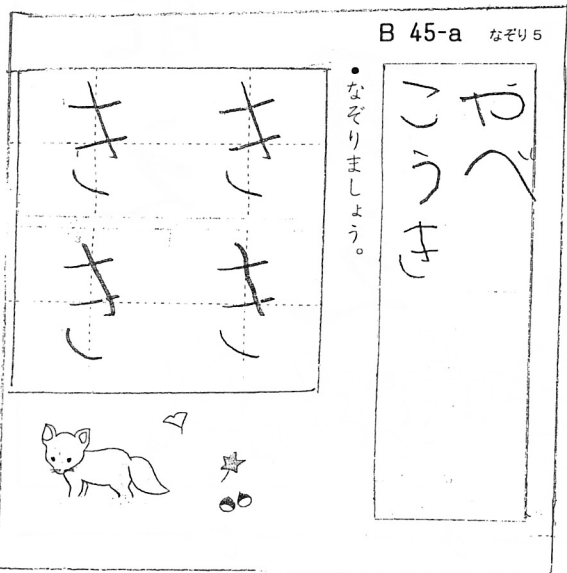 B 45-a なぞり5
やべ
こうき
・なぞりましょう。
き
き
き
き